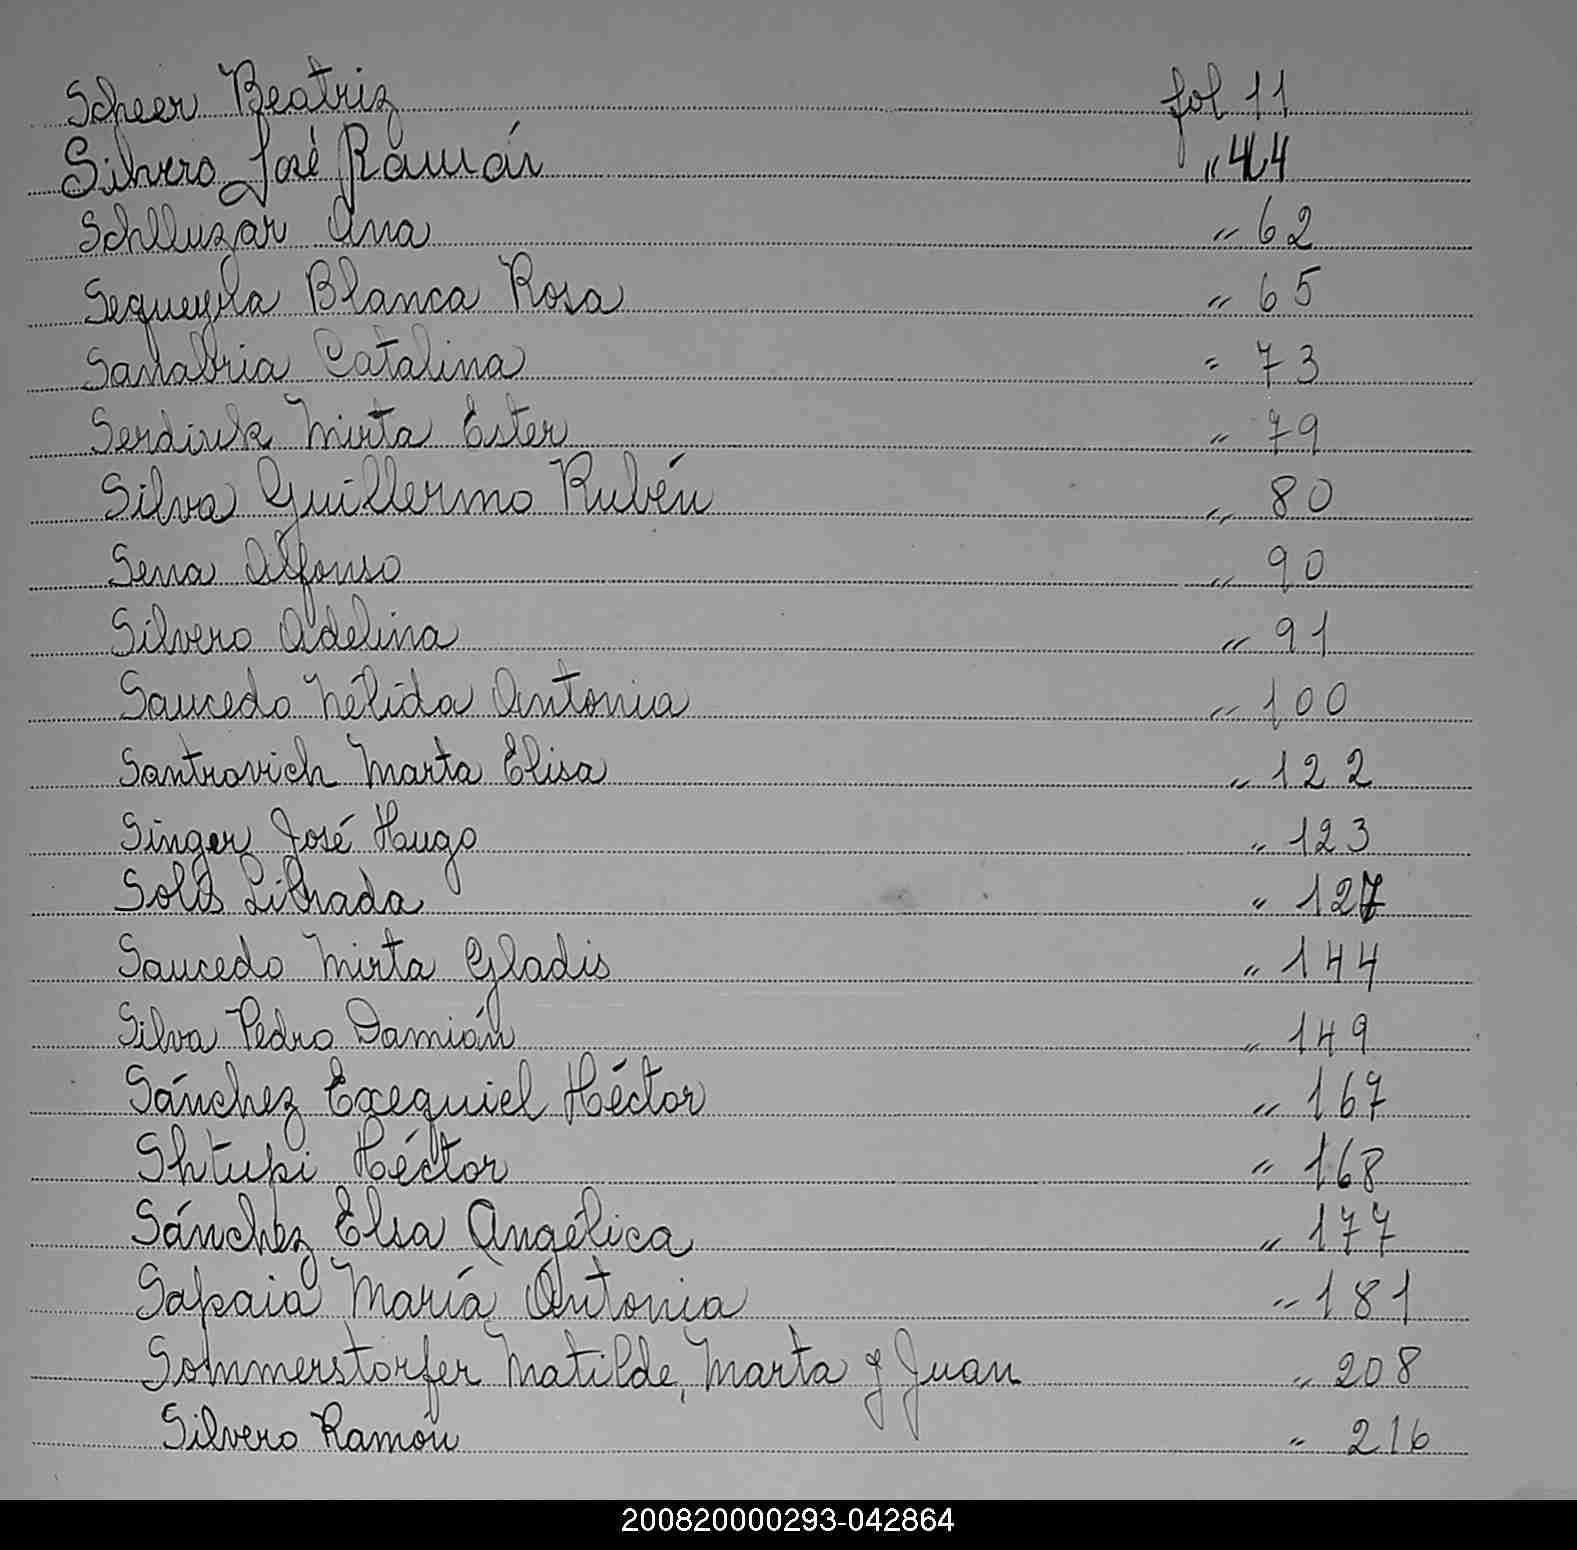 Scheer Beatriz fol 11
Silvero José Ramón " 44
Schlluzar Ana " 62
Sequeyla Blanca Rosa " 65
Sanabria Catalina " 73
Serdiuk Mirta Ester " 79
Silva Guillermo Rubén " 80
Sena Alfonso " 90
Silvero Adelina " 91
Saucedo Nélida Antonia " 100
Santrovich Marta Elisa " 122
Singer José Hugo " 123
Solis Librada " 127
Saucedo Mirta Gladis " 144
Silva Pedro Damián " 149
Sánchez Exequiel Héctor " 167
Shtupi Héctor " 168
Sánchez Elsa Angélica " 177
Sapaia María Antonia " 181
Sommerstorfer Matilde, Marta y Juan " 208
Silvero Ramón " 216
200820000293-042864